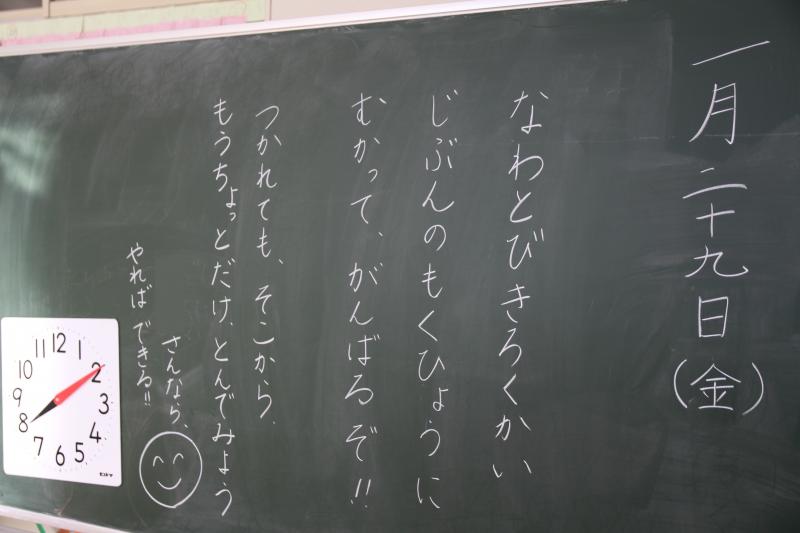 一月二十九日(金)
なわとびきろくかい
じぶんのもくひょうに
むかって、がんばるぞ!!
つかれても、そこから、
もうちょっとだけ、とんでみよう
さんなら、
やればできる!!
12
1
2
3
4
5
6
7
8
9
10
11